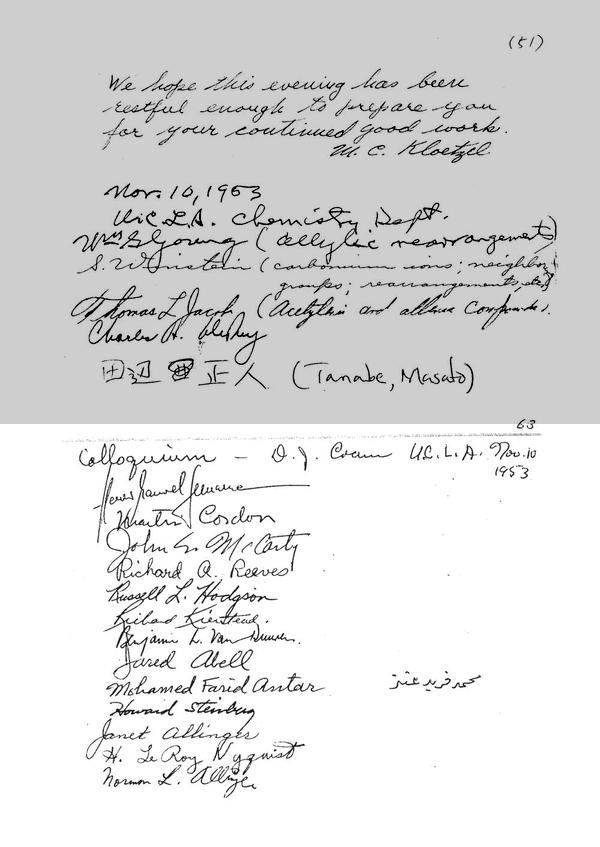 (51)
We hope this evening has been
restful enough to prepare you
for your continued good work.
M. C. Kloetzel
Nov. 10, 1953
U.C.L.A. Chemistry Dept.
Wm G Young (allylic rearrangements)
S. Winstein (carbonium ions; neighbor
groups; rearrangements, etc)
Thomas L Jacobs (Acetylenic and allene compounds).
Charles A.
田辺 正人 (Tanabe, Masato)
63
Colloquium – D. J. Cram U.C.L.A. Nov. 10
1953
Martin Cordon
John G. McCarty
Richard A. Reeves
Russell L. Hodgson
Richard Kierstead.
Benjamin L. Van Duuren.
Jared Abell
Mohamed Farid Antar محمد فريد عنتر
Howard Steinberg
Janet Allinger
H. Le Roy Nyquist
Norman L. Allinger